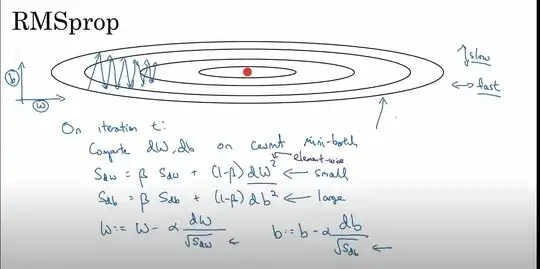 RMSprop
b
w
slow
fast
On iteration t:
Compute dW, db on current mini-batch
element-wise
S_dw = β S_dw + (1-β) dW² ← small
S_db = β S_db + (1-β) db² ← large
W := W - α dW/√S_dw ← b := b - α db/√S_db ←